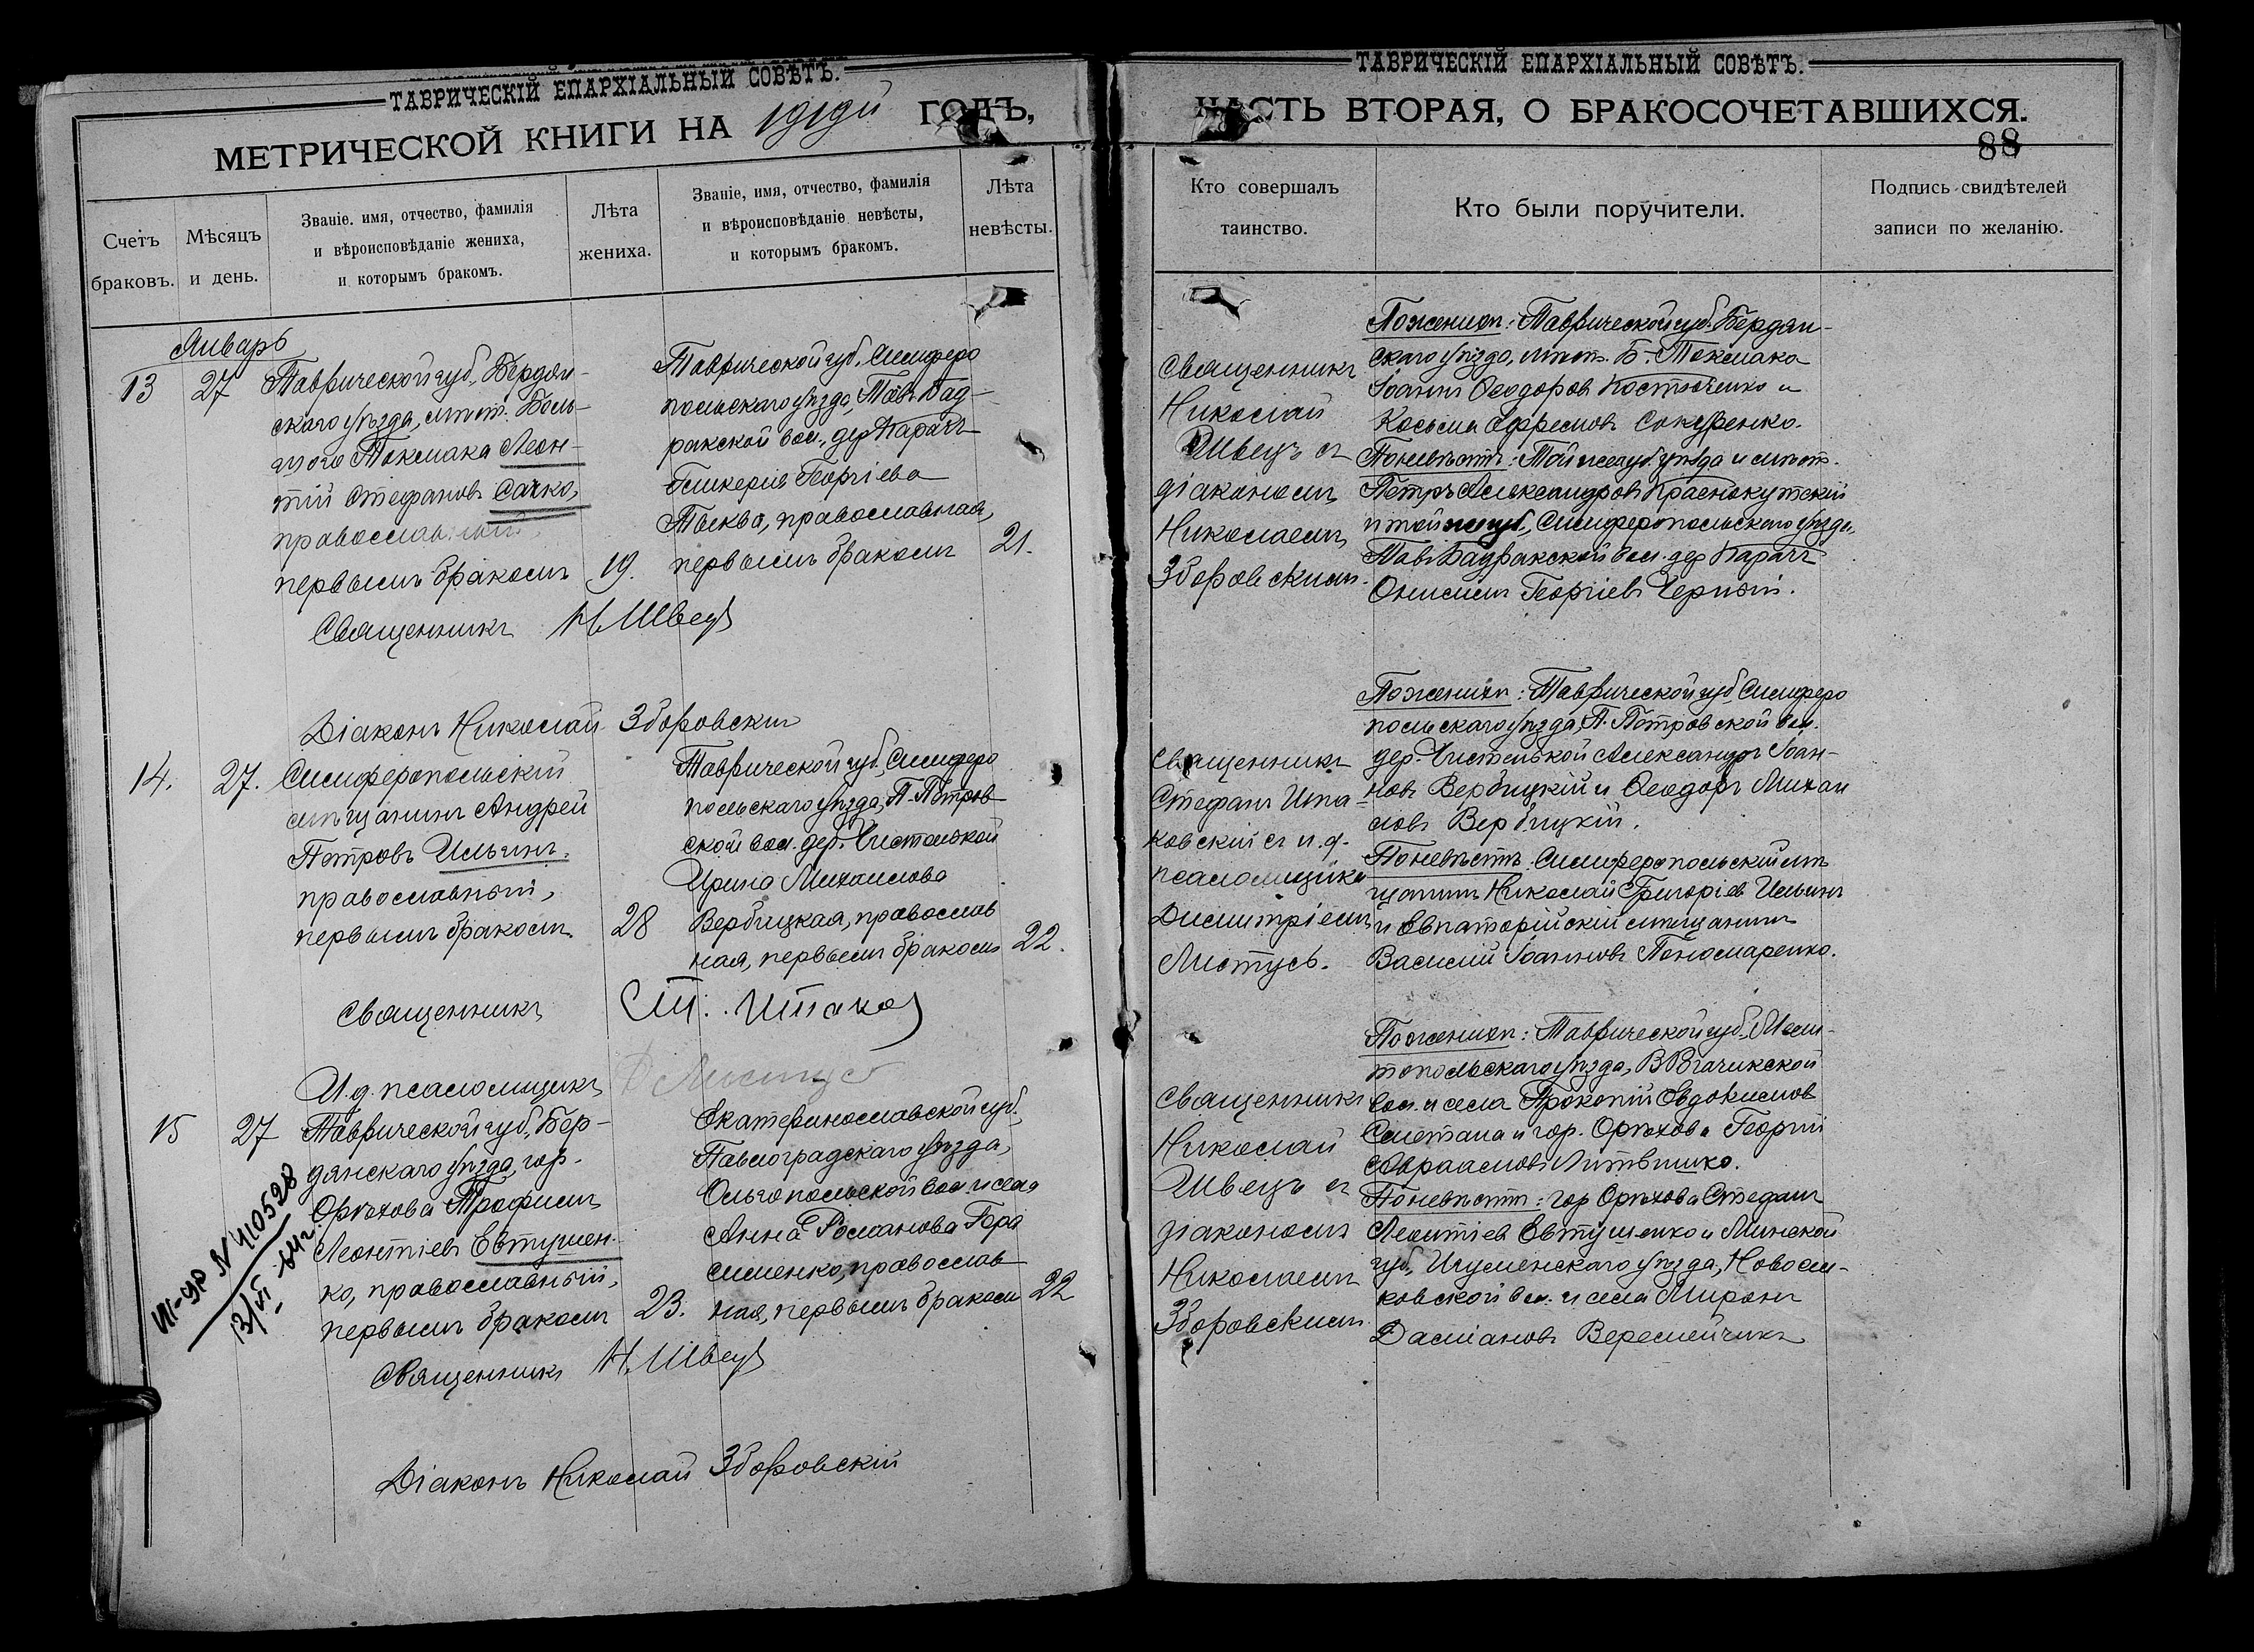 ТАВРИЧЕСКІЙ ЕПАРХІАЛЬНЫЙ СОВѢТЪ.
МЕТРИЧЕСКОЙ КНИГИ НА 1919й ГОДЪ,
Счетъ браковъ.
Мѣсяцъ и день.
Званіе. имя, отчество, фамилія
и вѣроисповѣданіе жениха,
и которымъ бракомъ.
Лѣта
жениха.
Званіе, имя, отчество, фамилія
и вѣроисповѣданіе невѣсты,
и которымъ бракомъ.
Лѣта
невѣсты.
Январь
13
27
Таврической губ., Бердян-
скаго уѣзда, мѣст. Боль-
шого Токмака Леон-
тій Стефановъ Сачко,
православный,
первымъ бракомъ
19.
Таврической губ. Симферо
польскаго уѣзда, Тавъ Бад-
ракской вол., дер Карачъ
Гликерія Георгіева
Тыква, православная,
первымъ бракомъ
21.
Священникъ Н. Швецъ
Діаконъ Николай Зборовскій
14.
27.
Симферопольскій
мѣщанинъ Андрей
Петровъ Ильинъ.
православный,
первымъ бракомъ.
28
Таврической губ., Симферо
польскаго уѣзда, П.-Петров
ской вол. дер. Чистенькой
Ирина Михаилова
Вербицкая, православ
ная, первымъ бракомъ
22.
Священникъ Ст.
И.д. псаломщикъ Д Листусъ
15
27
Таврической губ., Бер-
дянскаго уѣзда, гор.
Орѣхова Трофимъ
Леонтіевъ Евтушен-
ко, православный,
первымъ бракомъ
23.
Екатеринославской губ.,
Павлоградскаго уѣзда,
Ольгопольской вол. и села
Анна Романова Гера
сименко, православ
ная, первымъ бракомъ
22
N 410528
13/VI
Священникъ Н. Швецъ
Діаконъ Николай Зборовскій
ТАВРИЧЕСКІЙ ЕПАРХІАЛЬНЫЙ СОВѢТЪ.
ЧАСТЬ ВТОРАЯ, О БРАКОСОЧЕТАВШИХСЯ.
88
Кто совершалъ
таинство.
Кто были поручители.
Подпись свидѣтелей
записи по желанію.
Священникъ
Николай
Швецъ съ
діакономъ
Николаемъ
Зборовскимъ.
По женихѣ: Таврической губ. Бердян-
скаго уѣзда, мѣст. Б.-Токмака
Іоаннъ Ѳеодоровъ Костюченко и
Косьма Ефремовъ Сокуренко.
По невѣстѣ: Той же губ. уѣзда и мѣст.
Петръ Александровъ Краснокутскій
и той же губ., Симферопольскаго уѣзда,
Тавъ Бадракской вол. дер Карачъ
Онисимъ Георгіевъ Черный.
Священникъ
Стефанъ Шпа-
ковскій съ и.д.
псаломщика
Димитріемъ
Листусъ.
По женихѣ: Таврической губ Симферо
польскаго уѣзда, П.-Петровской вол.
дер. Чистенькой Александръ Іоан-
новъ Вербицкій и Ѳеодоръ Михаи
ловъ Вербицкій.
По невѣстѣ: Симферопольскій мѣ
щанинъ Николай Григоріев Ильинъ
и Евпаторійскій мѣщанинъ
Василій Іоанновъ Пономаренко.
Священникъ
Николай
Швецъ съ
діакономъ
Николаемъ
Зборовскимъ
По женихѣ: Таврической губ., Мели-
топольскаго уѣзда, В Рогачикской
вол. и села Прокопій Евдокимов
Сметана и гор. Орѣхова Георгій
Авраамовъ Литвишко.
По невѣстѣ: гор Орѣхова Стефанъ
Леонтіев Евтушенко и Минской
губ., Игуменскаго уѣзда, Новосел-
ковской вол. и села Миронъ
Даміановъ Веремейчикъ